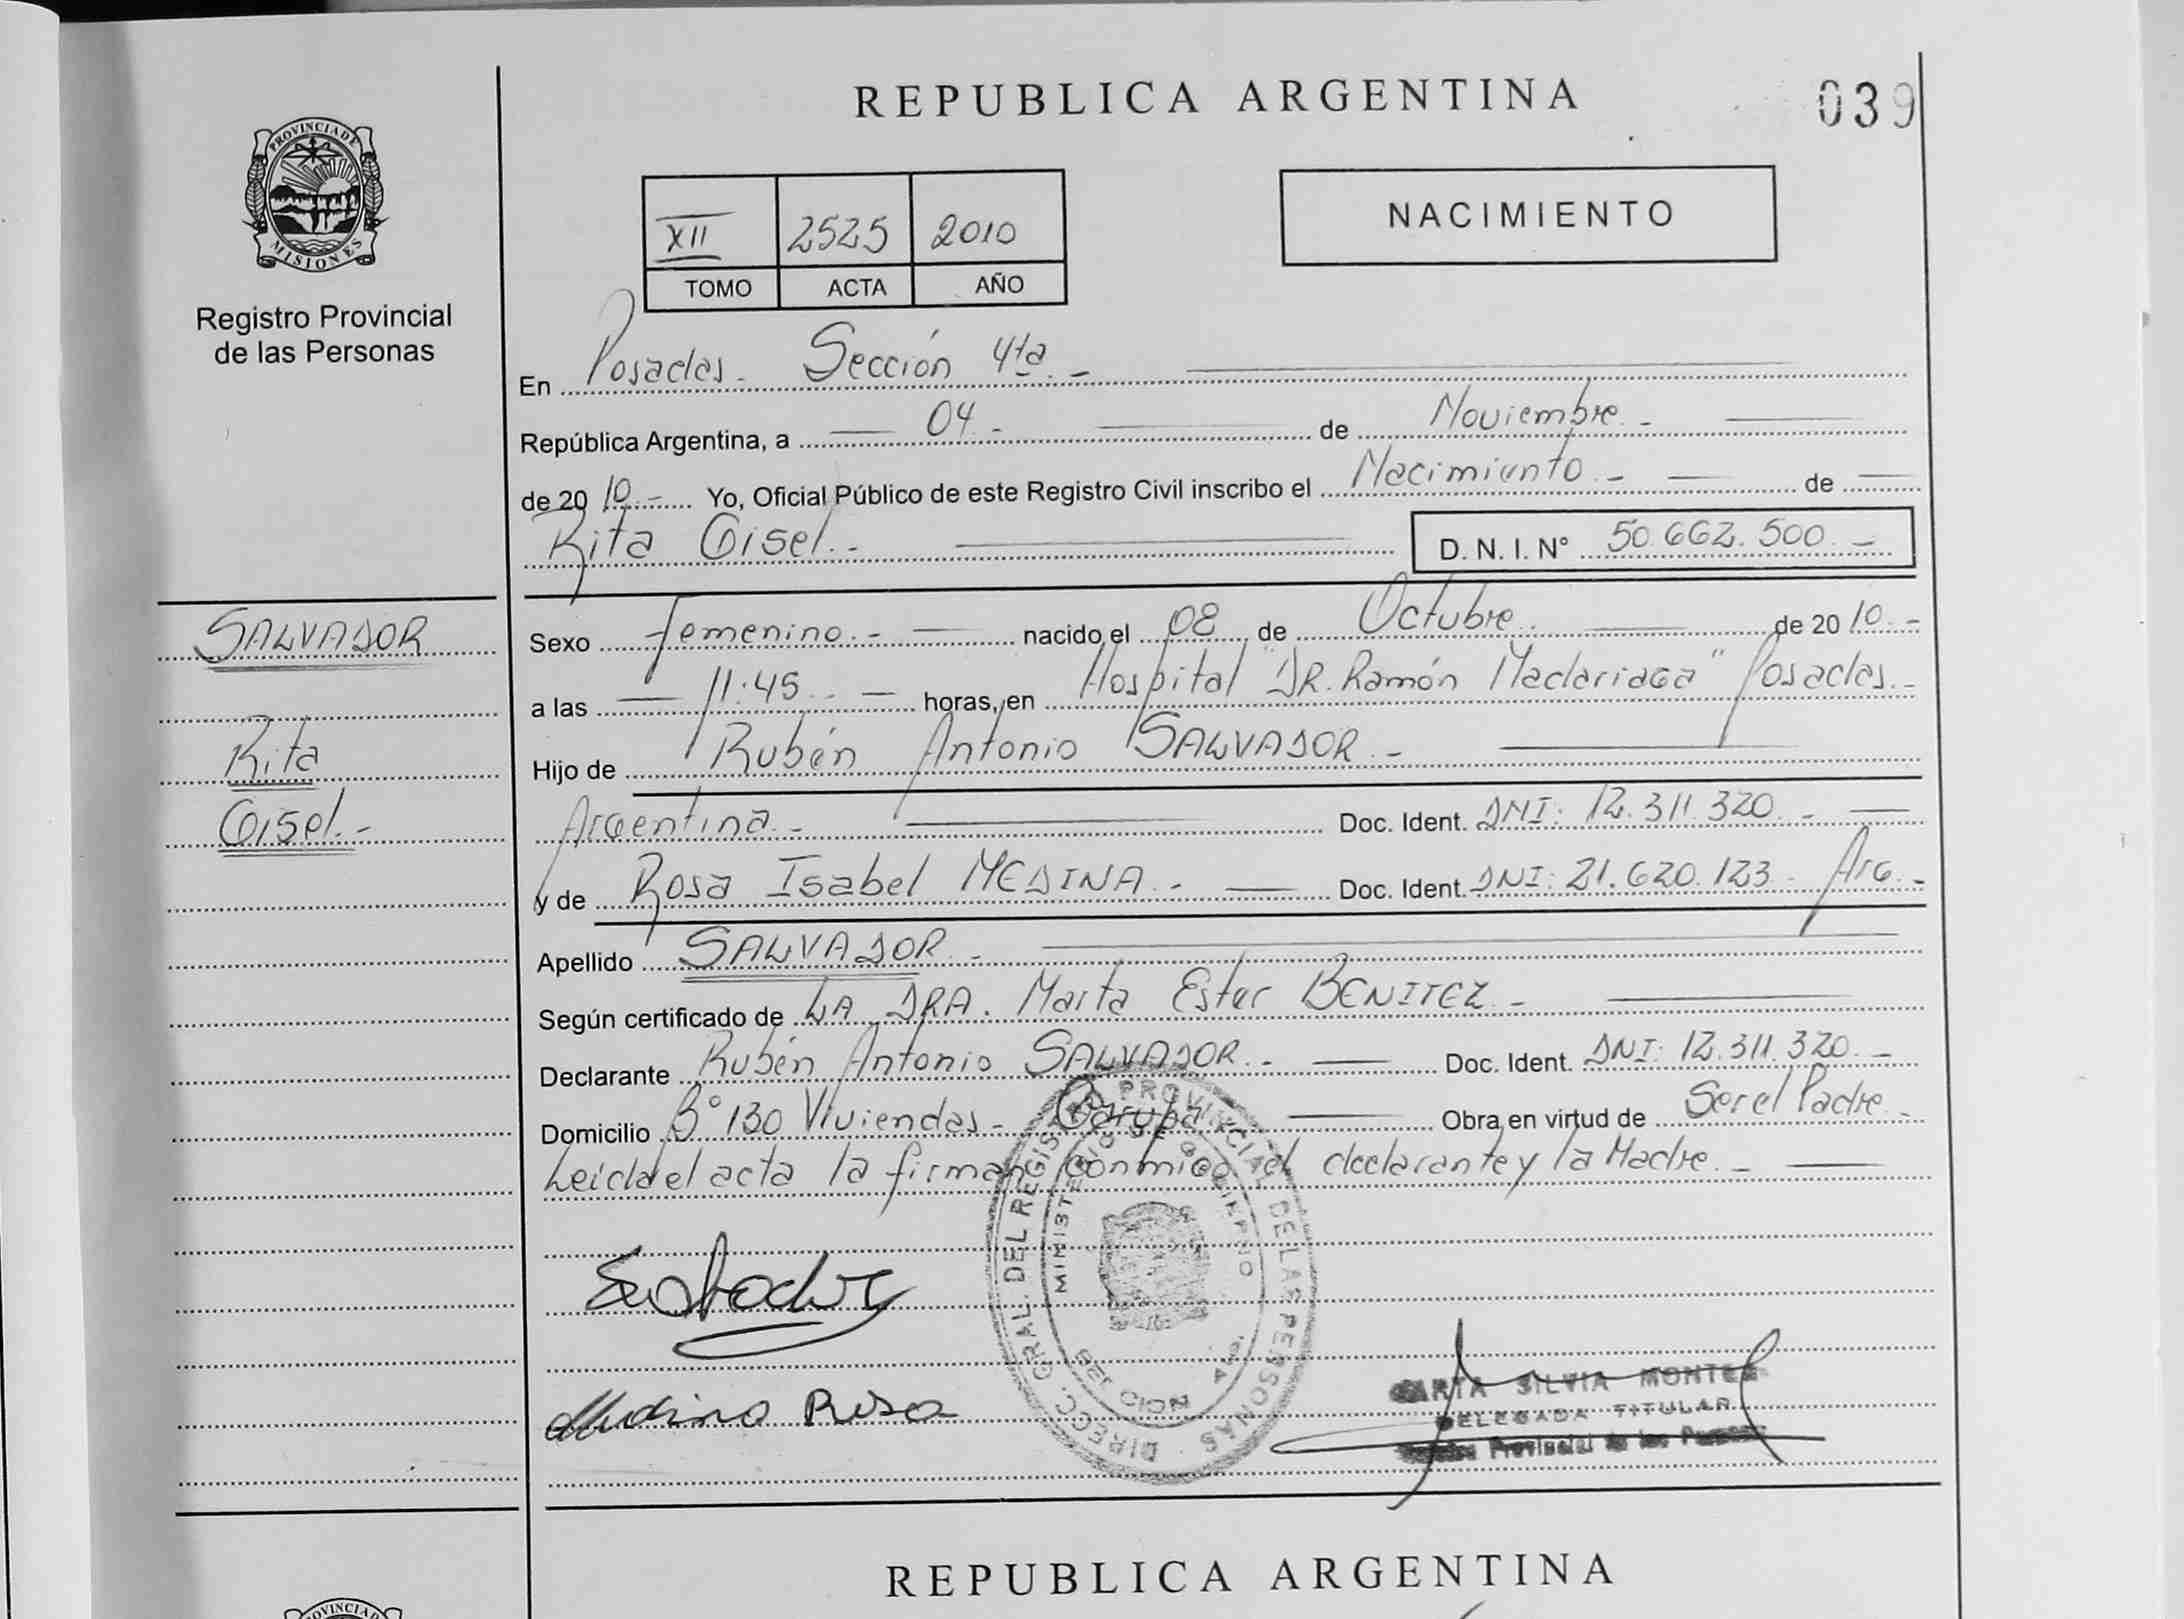 REPUBLICA ARGENTINA
039
PROVINCIA DE
MISIONES
Registro Provincial
de las Personas
XII 2525 2010
TOMO ACTA AÑO
NACIMIENTO
En Posadas - Sección 4ta. -
República Argentina, a 04 - de Noviembre -
de 2010 - Yo, Oficial Público de este Registro Civil inscribo el Nacimiento - de
Rita Gisel - D. N. I. N° 50.662.500 -
SALVADOR
Rita
Gisel. -
Sexo femenino. - nacido el 08 de Octubre de 2010. -
a las 11:45 - horas, en Hospital "DR. Ramón Madariaga" Posadas. -
Hijo de Rubén Antonio SALVADOR. -
Argentina - Doc. Ident. DNI: 12.311.320 -
y de Rosa Isabel MEDINA. - Doc. Ident. DNI: 21.620.123 - Arg. -
Apellido SALVADOR -
Según certificado de LA DRA. Marta Ester BENITEZ -
Declarante Rubén Antonio SALVADOR. - Doc. Ident. DNI: 12.311.320 -
Domicilio B° 130 Viviendas - Garupá Obra en virtud de Ser el Padre -
Leída el acta la firman conmigo el declarante y la Madre. -
DIRECC. GRAL. DEL REGISTRO PROVINCIAL DE LAS PERSONAS
MINISTERIO DE GOBIERNO
Medina Rosa
SILVIA MONTES
DELEGADA TITULAR
Provincial de las Personas
REPUBLICA ARGENTINA
PROVINCIA